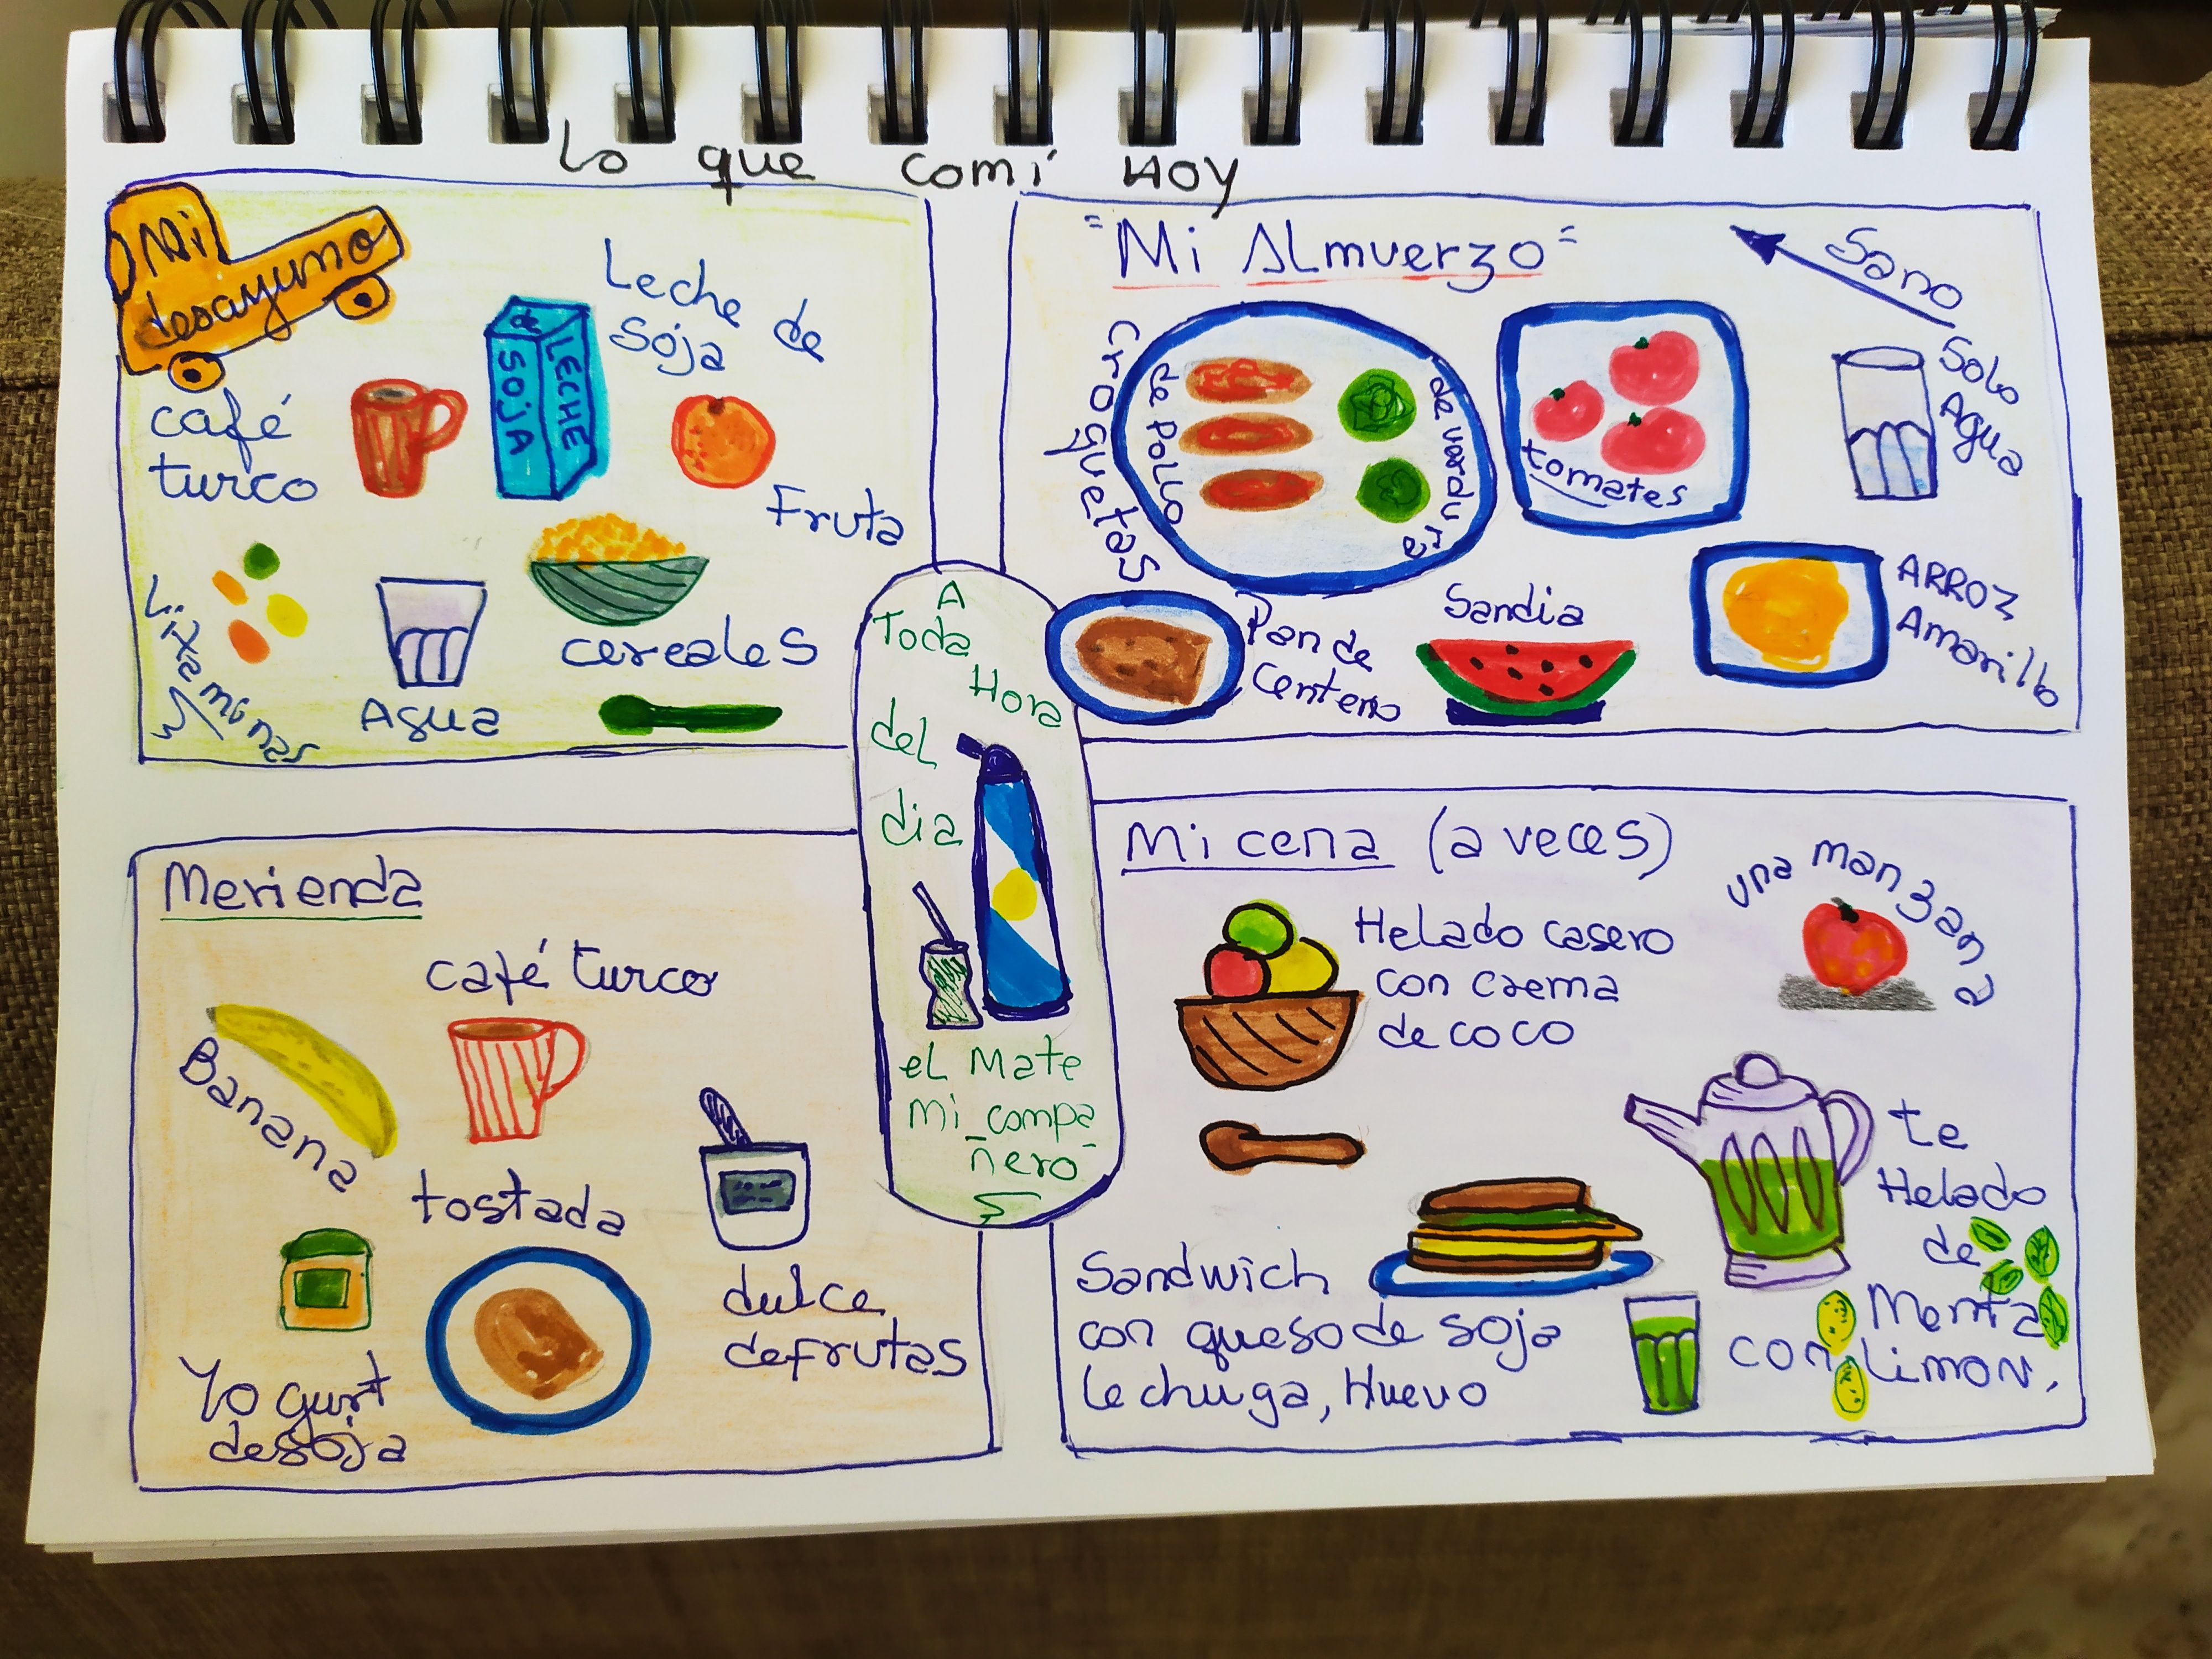 Lo que comí HOY
Mi
desayuno
Leche de
Soja
de
SOJA
LECHE
café
turco
Fruta
Vitaminas
Agua
cereales
"Mi ALmuerzo"
Sano
Solo
Agua
Croquetas
de Pollo
de verdura
tomates
Pan de
Centeno
Sandia
ARROZ
Amarillo
A
Toda
Hora
del
dia
eL Mate
mi compa
ñero
Merienda
café turco
Banana
tostada
Yogurt
desoja
dulce
defrutas
Mi cena (a veces)
una manzana
Helado casero
con crema
de coco
te
Helado
de
Menta
con limon,
Sandwich
con queso de soja
lechuga, Huevo